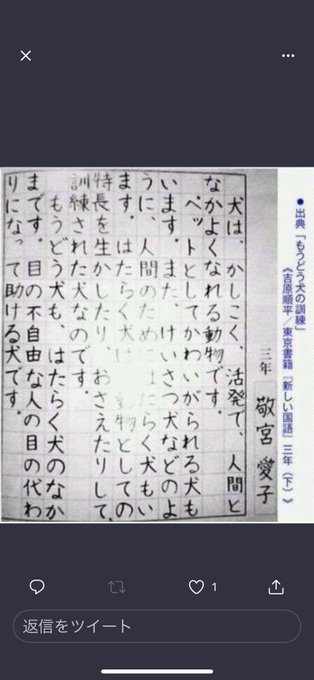 ●出典「もうどう犬の訓練」
《吉原順平／東京書籍『新しい国語』三年（下）》
三年 敬宮 愛子
犬は、かしこく、活発で、人間と
なかよくなれる動物です。
ペットとしてかわいがられる犬も
います。また、けいさつ犬などのよ
うに、人間のためにはたらく犬もい
ます。はたらく犬は、動物としての
特長を生かしたり、おさえたりして、
訓練された犬なのです。
もうどう犬も、はたらく犬のなか
まです。目の不自由な人の目の代わ
りになって助ける犬です。
1
返信をツイート